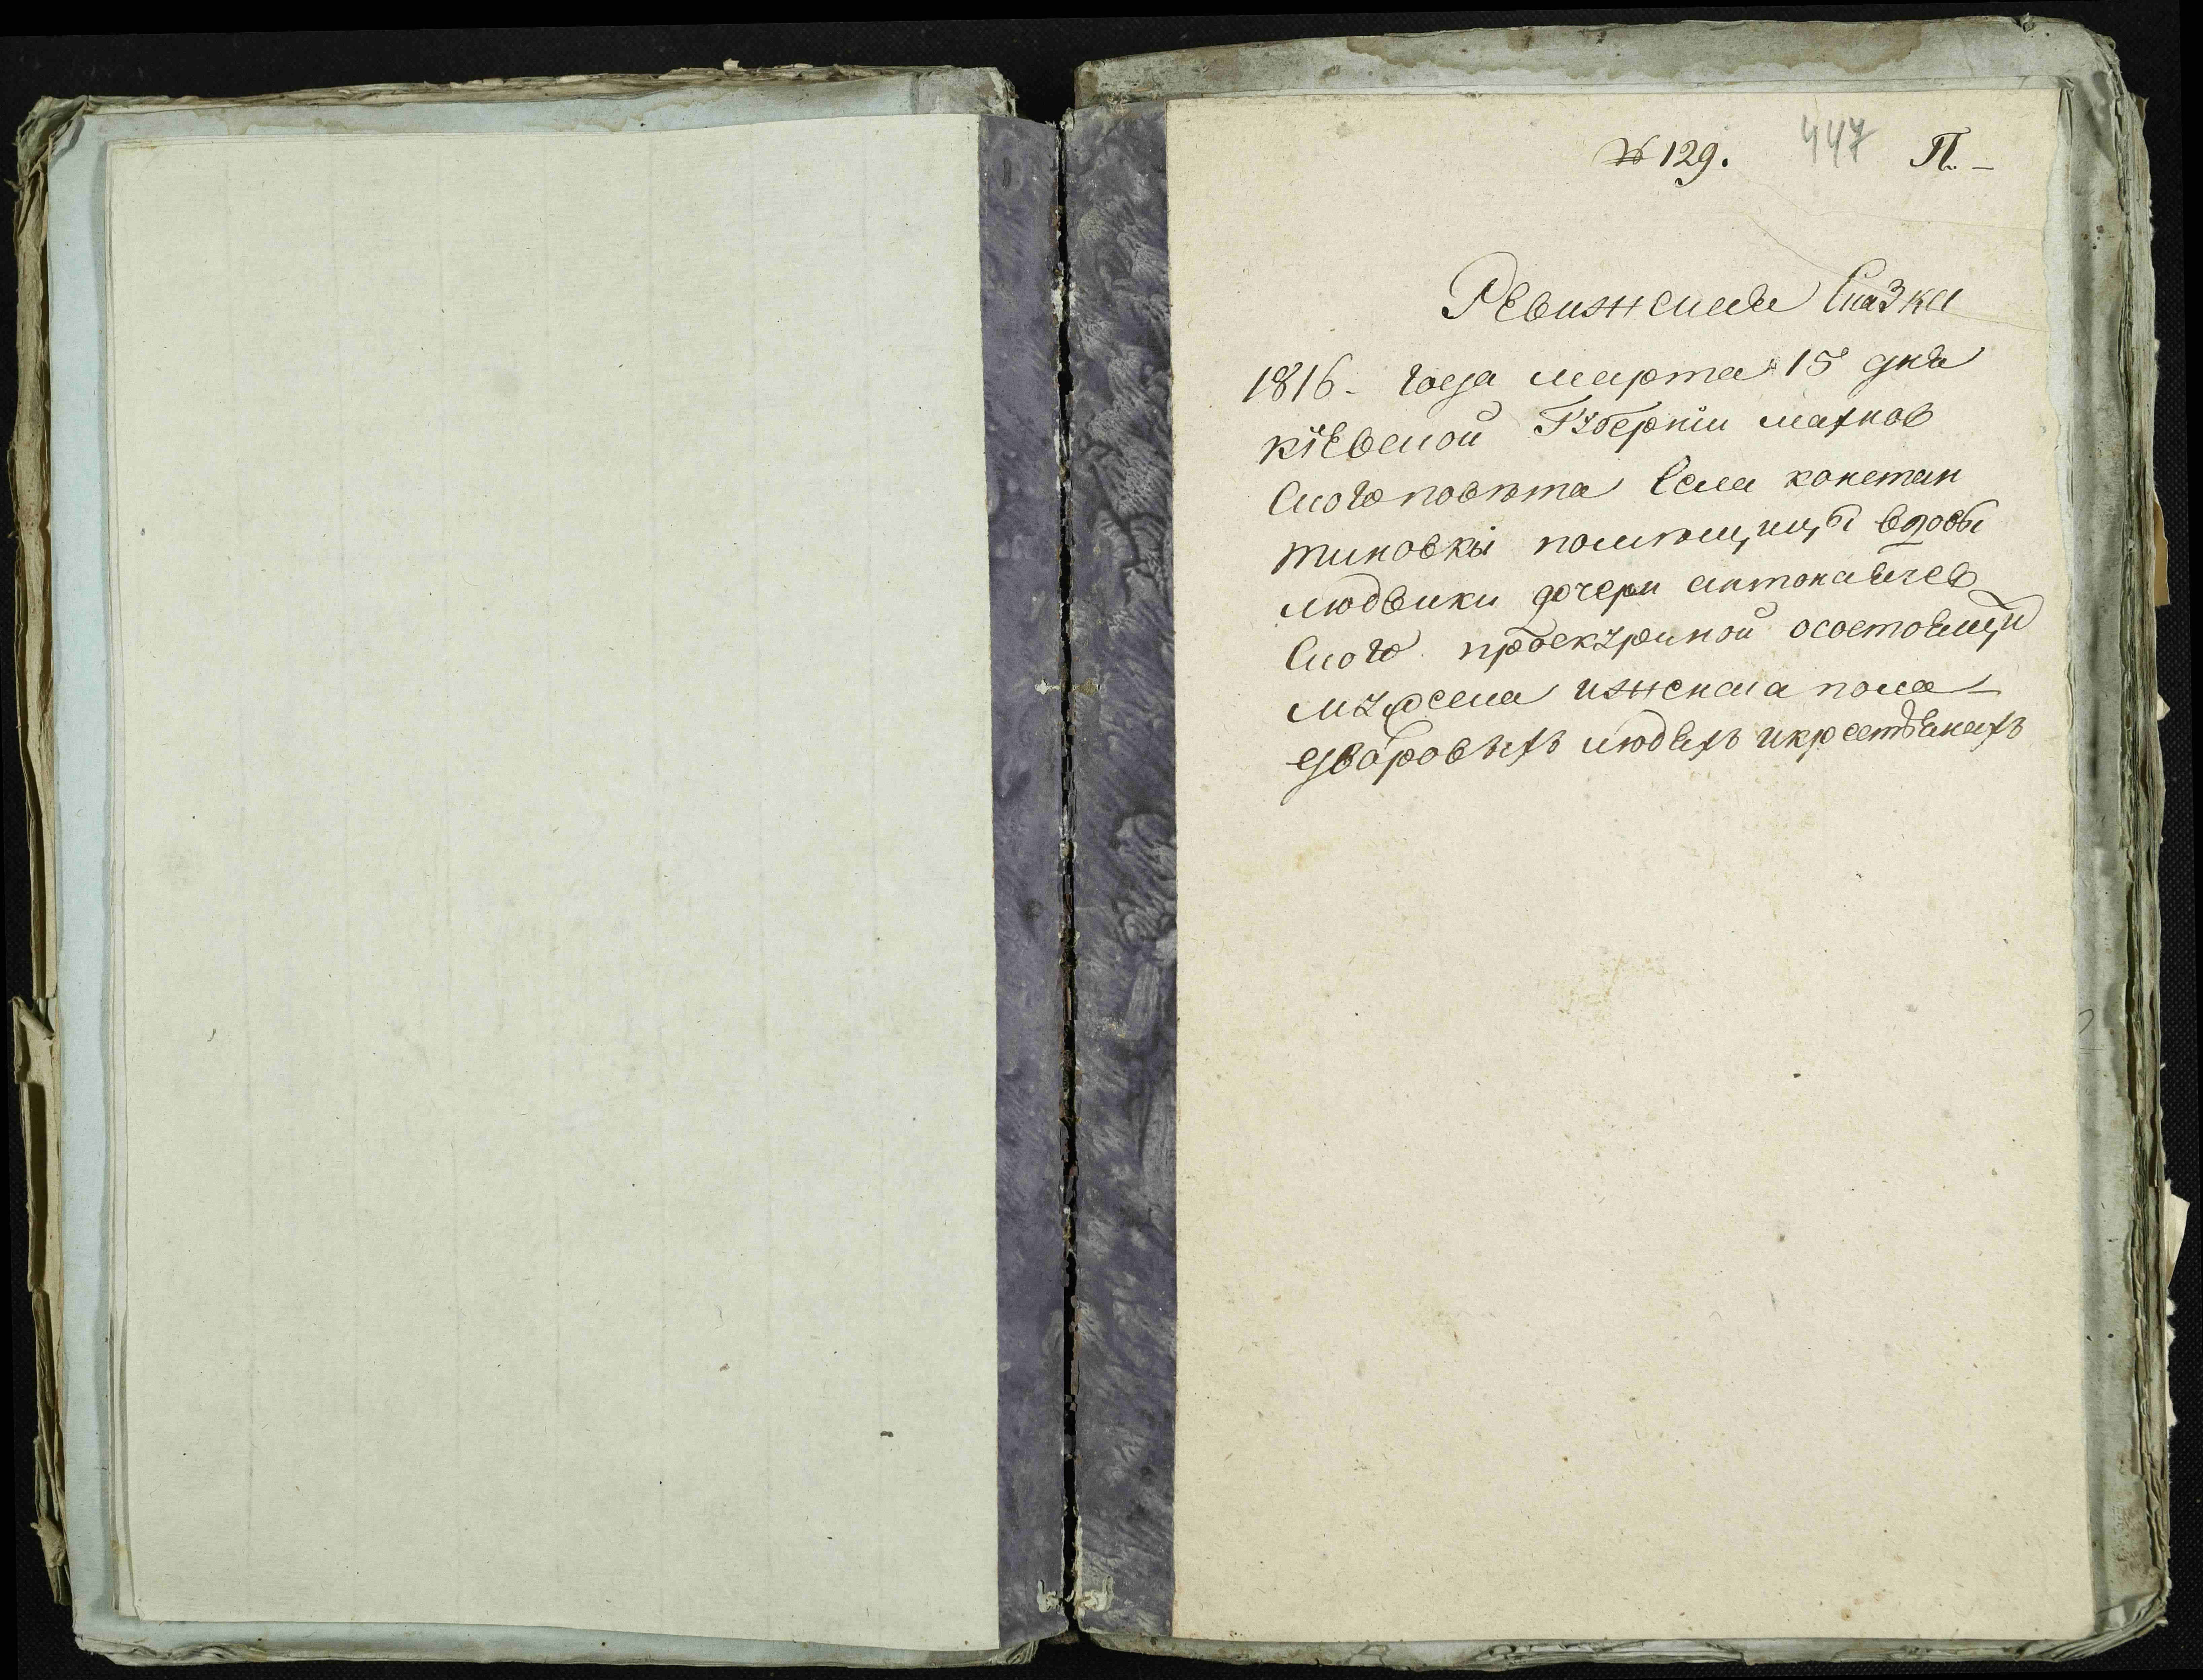 № 129. 447 П. –
Ревижская Сказка
1816 – года марта 15 дня
кіевской Губерніи махнов
ского повѣта Села констан
тиновки помѣщицы вдовы
людвики дочери антона
ского осостоящи
мужеска иженска пола –
дворовыхъ людяхъ икрестьянахъ